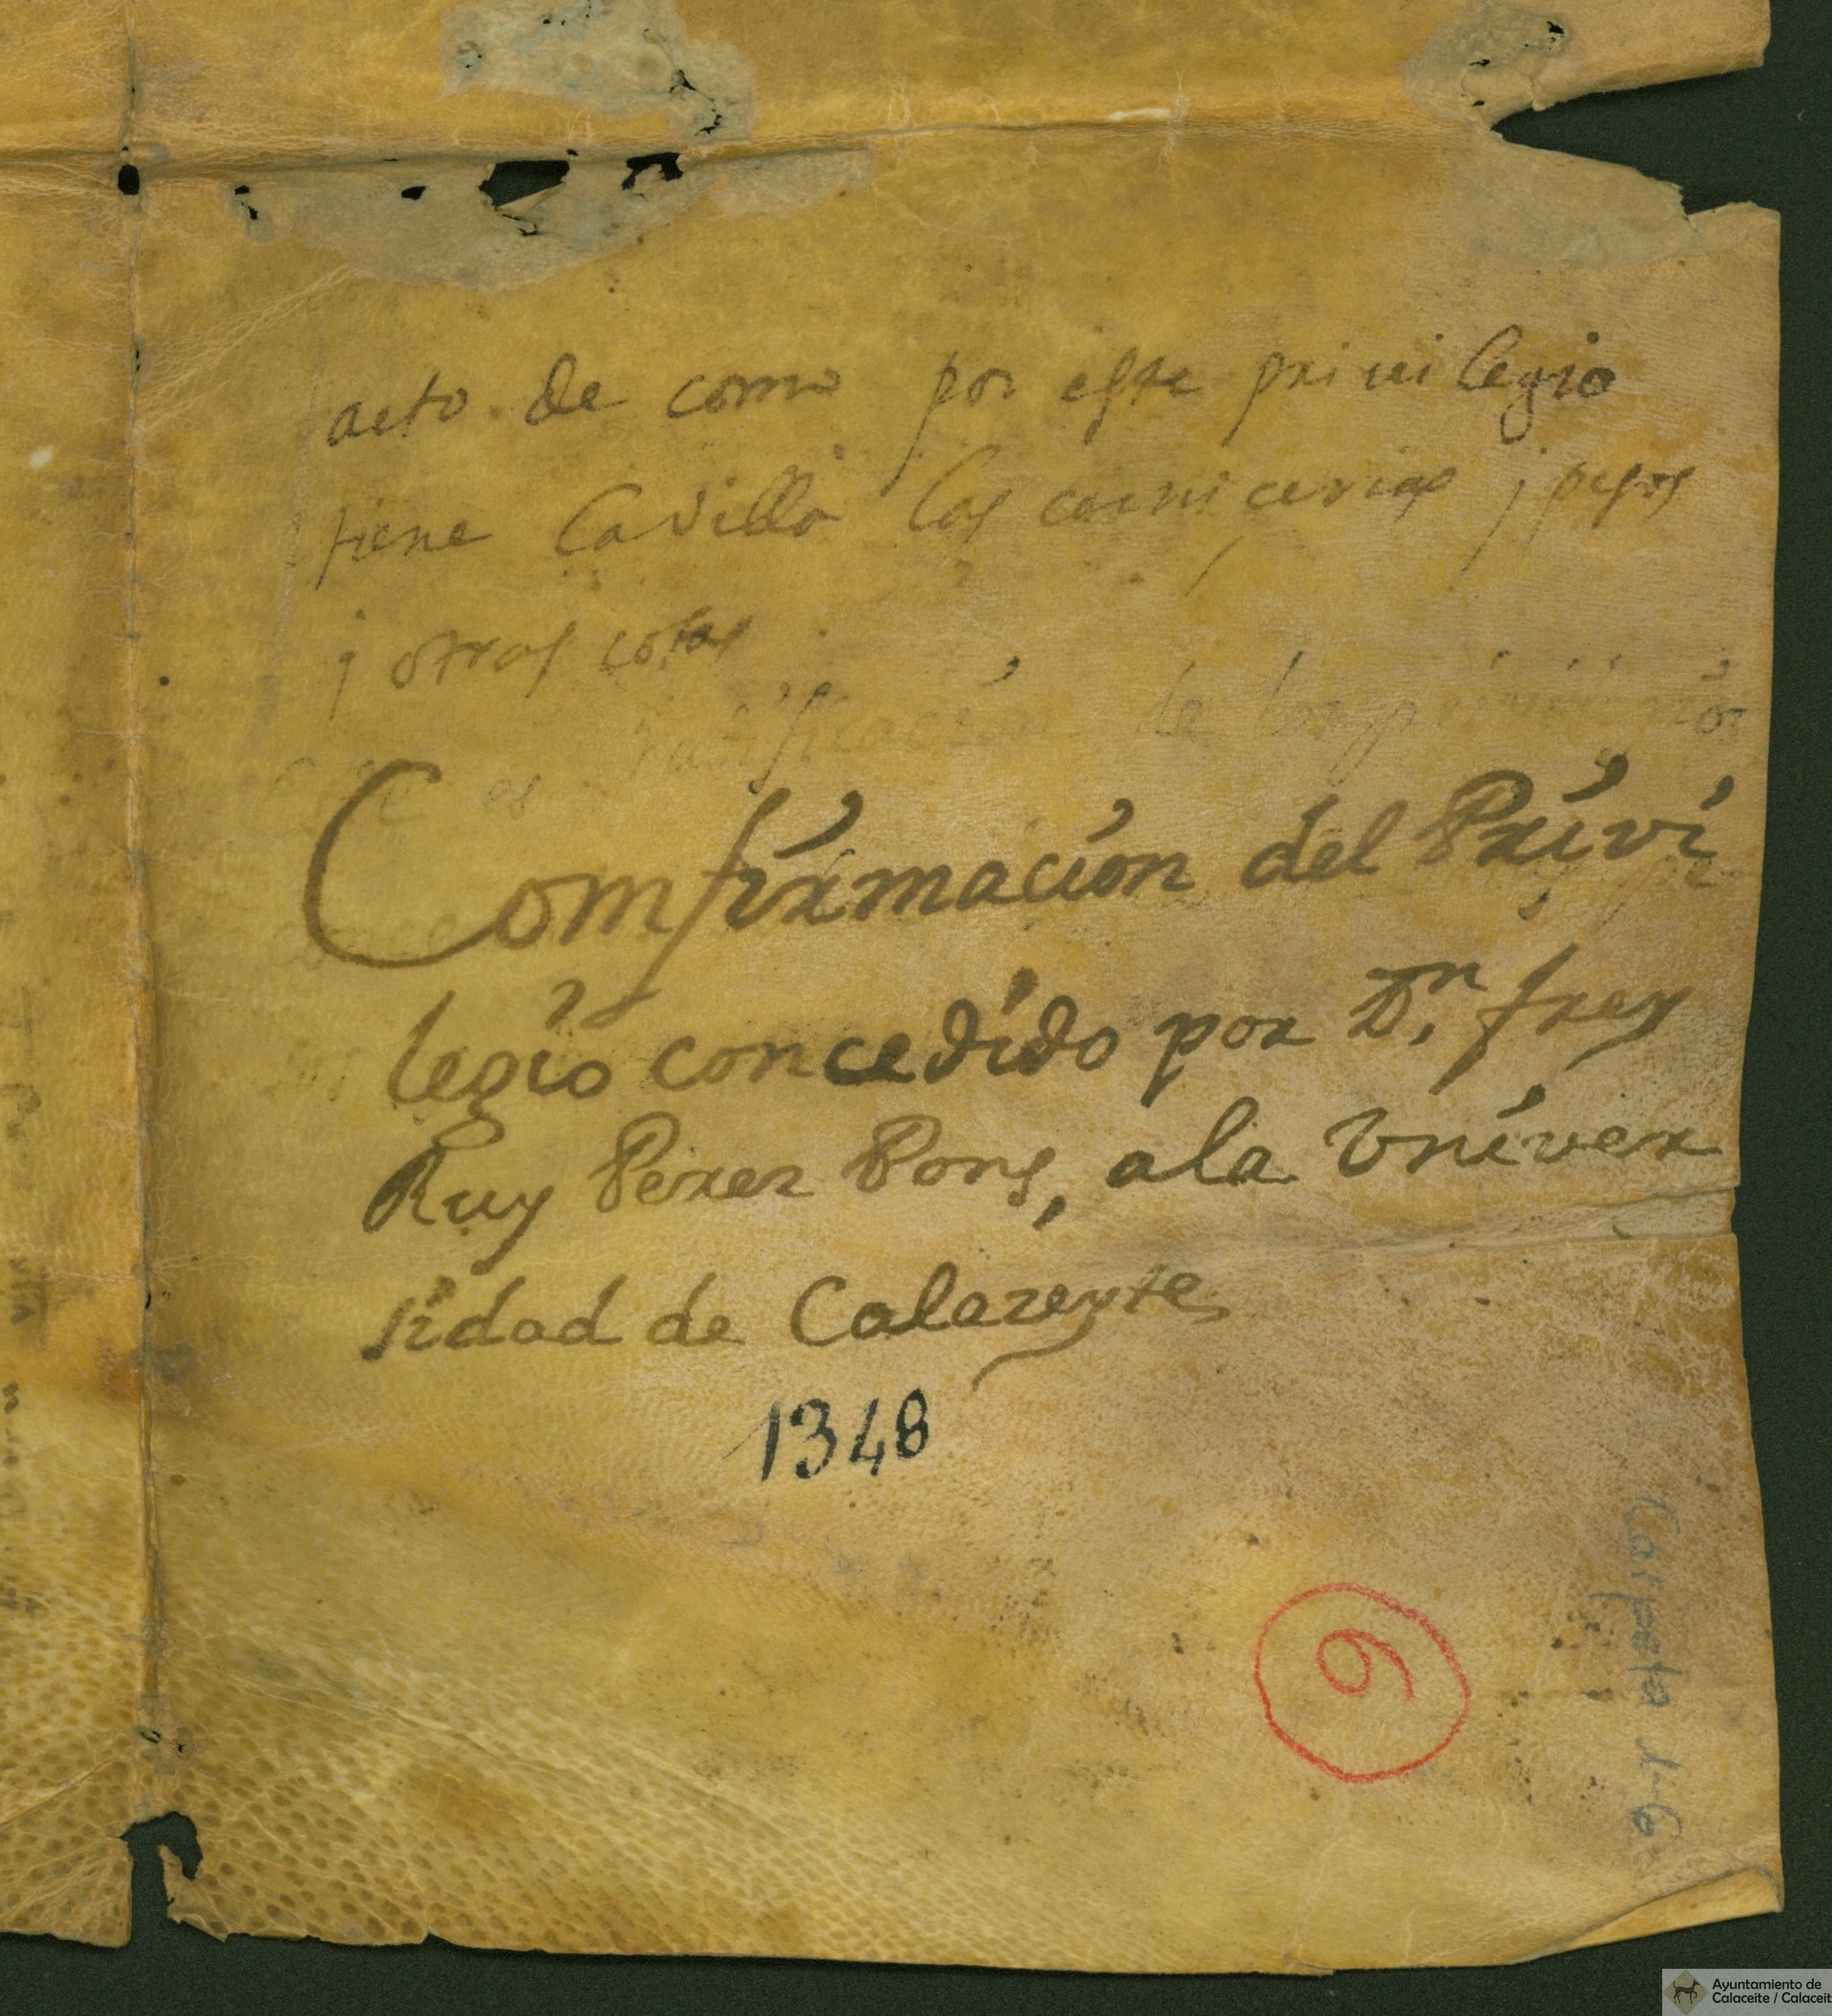 acto de como por este priuilegio
tiene la villa las carnicerias j pesos
j otras cosas
es ratificación de los
Comfirmacion del Privi
legio concedido por Dn. frey
Ruy Perez Pons, a la Vniver
sidad de Calazeyte
1348
9
Carpeta 1-6
Ayuntamiento de
Calaceite / Calaceit